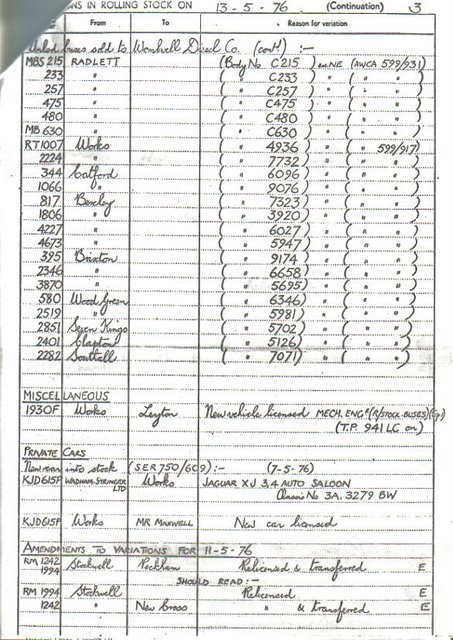 NS IN ROLLING STOCK ON 13-5-76 (Continuation) 3
From To Reason for variation
Unlicd buses sold to Wombwell Diesel Co. (cont'd) :-
MBS 215 RADLETT (Body No C215) ex NE (AWCA 599/931)
233 " ( " C233 ) " ( " " )
257 " ( " C257 ) " ( " " )
475 " ( " C475 ) " ( " " )
480 " ( " C480 ) " ( " " )
MB 630 " ( " C630 ) " ( " " )
RT1007 Works ( " 4936 ) " ( " 599/917)
2224 " ( " 7732 ) " ( " " )
344 Catford ( " 6096 ) " ( " " )
1066 " ( " 9076 ) " ( " " )
817 Bexley ( " 7323 ) " ( " " )
1806 " ( " 3920 ) " ( " " )
4227 " ( " 6027 ) " ( " " )
4673 " ( " 5947 ) " ( " " )
395 Brixton ( " 9174 ) " ( " " )
2346 " ( " 6658 ) " ( " " )
3870 " ( " 5695 ) " ( " " )
580 Wood Green ( " 6346 ) " ( " " )
2519 " ( " 5981 ) " ( " " )
2851 Seven Kings ( " 5702 ) " ( " " )
2401 Clapton ( " 5126 ) " ( " " )
2282 Southall ( " 7071 ) " ( " " )
MISCELLANEOUS
1930F Works Leyton New vehicle licensed MECH. ENGR (R/STOCK-BUSES)
(T.P. 941 LC on)
PRIVATE CARS
New cars into stock (SER 750/609) :- (7-5-76)
KJD615P WADHAM-STRINGER LTD Works JAGUAR XJ 3,4 AUTO SALOON
Chassis No 3A. 3279 BW
KJD615P Works MR MAXWELL New car licensed
AMENDMENTS TO VARIATIONS FOR 11-5-76
RM 1242 Stockwell Peckham Relicensed & transferred E
1994
SHOULD READ :-
RM 1994 Stockwell Relicensed E
1242 " New Cross " & transferred E